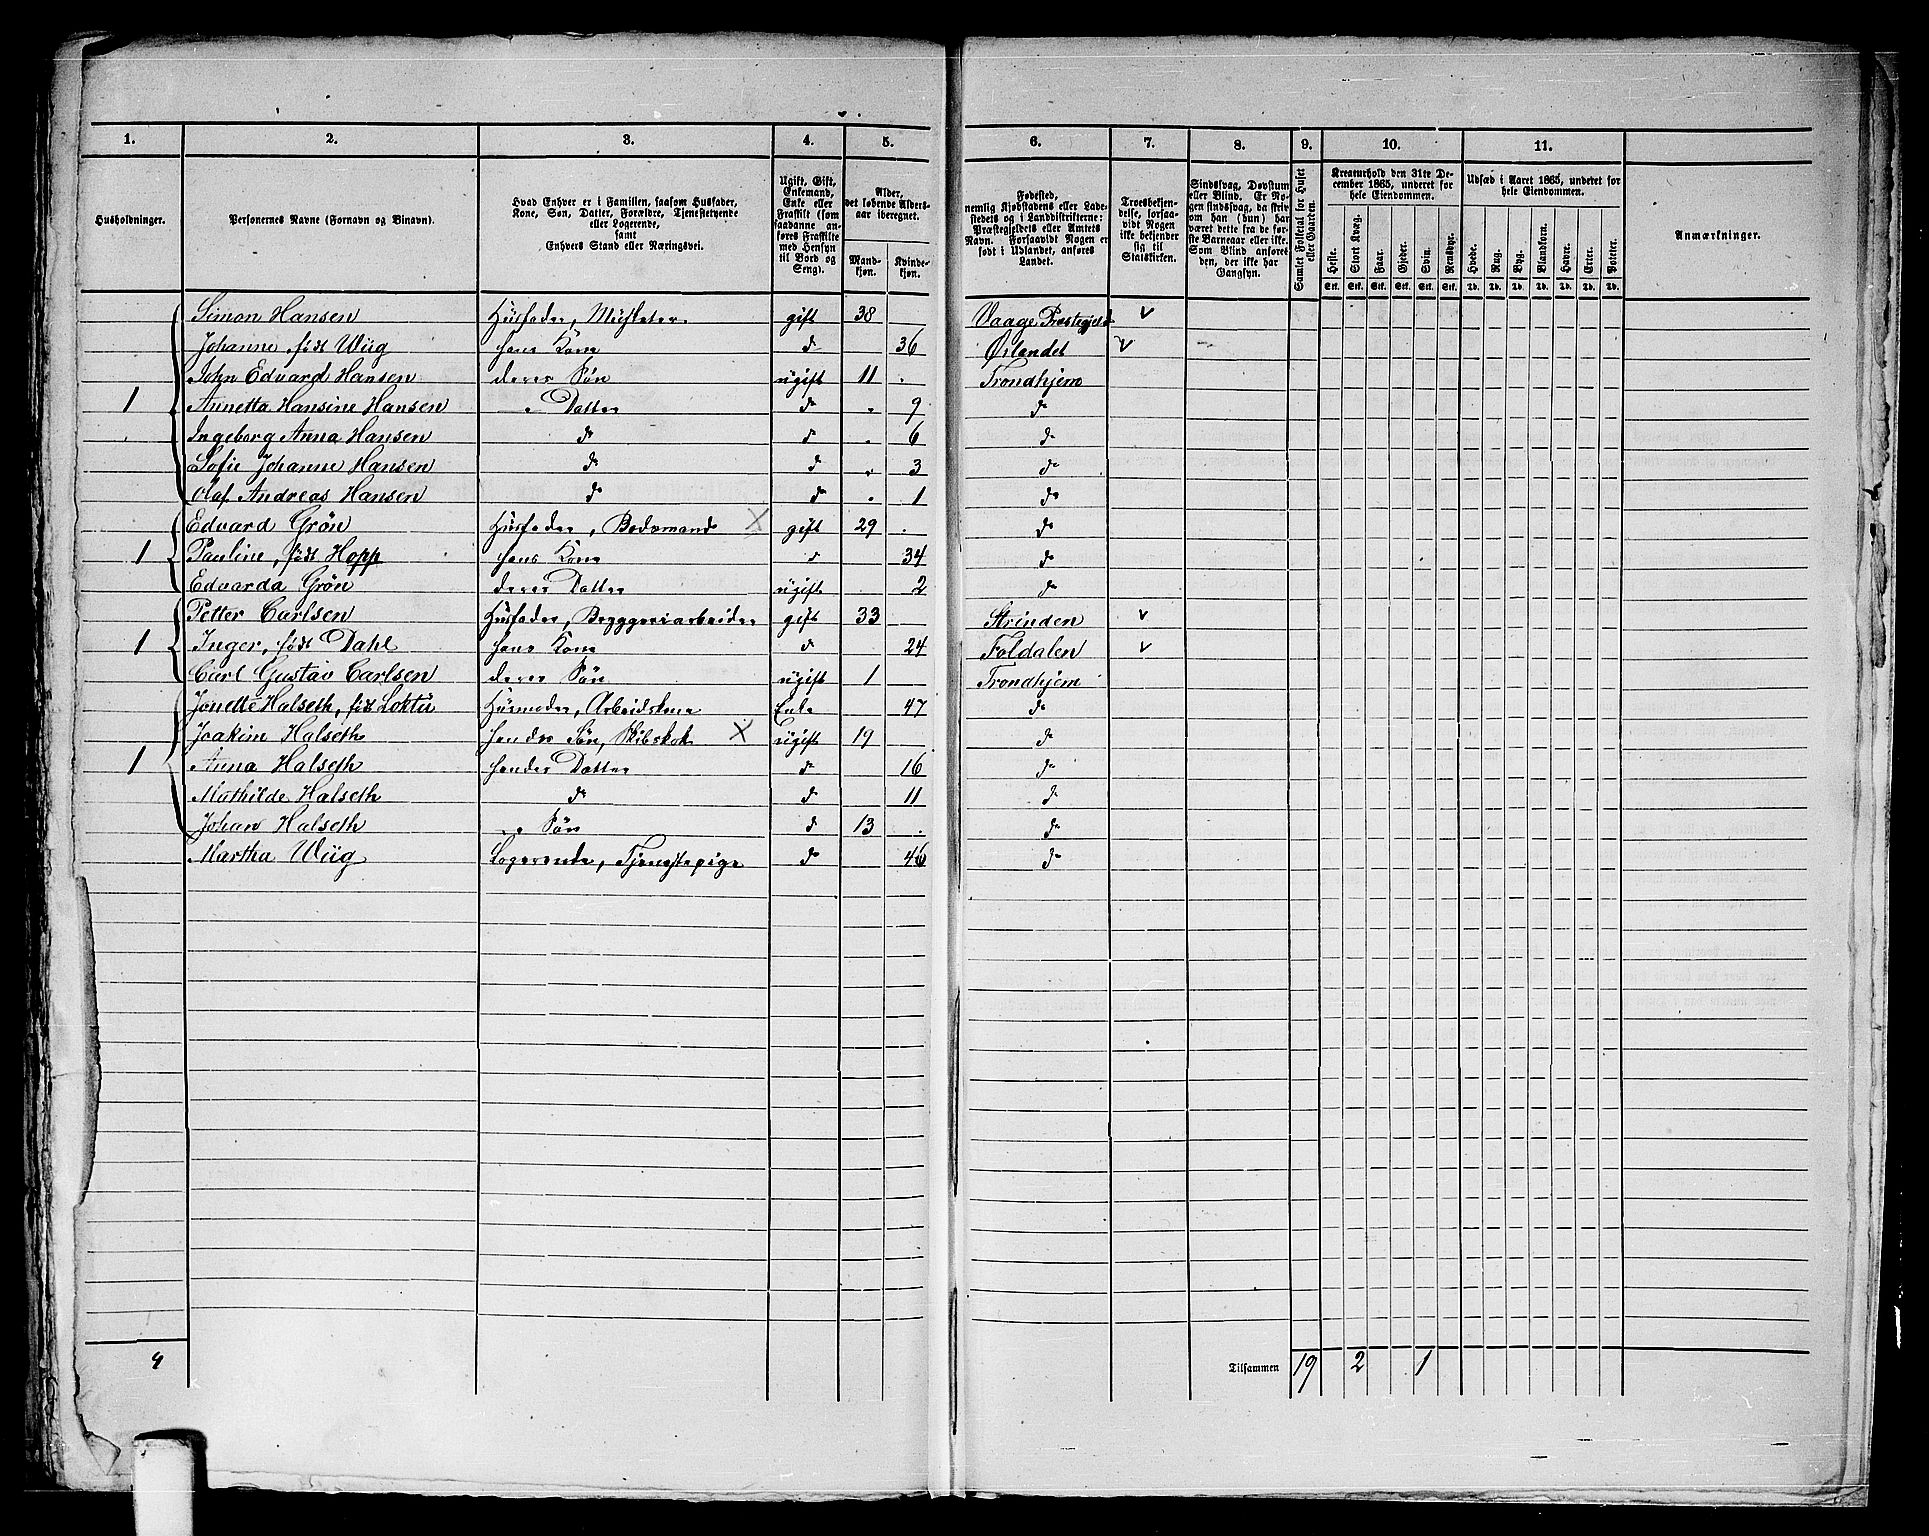 1. 2. 3. 4. 5. 6. 7. 8. 9. 10. 11.
Husholdninger.
Personernes Navne (Fornavn og Binavn).
Hvad Enhver er i Familien, saasom Husfader,
Kone, Søn, Datter, Forældre, Tjenestetyende
eller Logerende,
samt
Enhvers Stand eller Næringsvei.
Ugift, Gift,
Enkemand,
Enke eller
Fraskilt (som
saadanne an-
føres Fraskilte
med Hensyn
til Bord og
Seng).
Alder,
det løbende Alders-
aar iberegnet.
Mand-
kjøn.
Kvinde-
kjøn.
Fødested,
nemlig Kjøbstadens eller Lade-
stedets og i Landdistrikterne:
Præstegjeldets eller Amtets
Navn. Forsaavidt Nogen er
født i Udlandet, anføres
Landet.
Troesbekjen-
delse, forsaa-
vidt Nogen
ikke bekjender
sig til
Statskirken.
Sindssvag, Døvstum
eller Blind. Er No-
gen sindssvag, da skriv
om han (hun) har
været dette fra de før-
ste Barneaar eller ikke.
Som Blind anføres
den, der ikke har
Gangsyn.
Samlet Folketal for Huset
eller Gaarden.
Kreaturhold den 31te De-
cember 1865, underet for
hele Eiendommen.
Heste. Stort Kvæg. Faar. Gjeder. Svin. Rensdyr.
Stk. Stk. Stk. Stk. Stk. Stk.
Udsæd i Aaret 1865, underet for
hele Eiendommen.
Hvede. Rug. Byg. Blandkorn. Havre. Erter. Poteter.
Td. Td. Td. Td. Td. Td. Td.
Anmærkninger.
Simon Hansen Husfader, Musketer gift 38 Vaage Præstegjeld v
Johanne født Wiig hans Kone d 36 Ørlandet v
John Edvard Hansen deres Søn ugift 11 . Trondhjem
1 Annetta Hansine Hansen " Datter d . 9 d
Ingeborg Anna Hansen d d . 6 d
Sofie Johanne Hansen d d . 3 d
Olaf Andreas Hansen d d . 1 d
Edvard Grøn Husfader, Bodsmand X gift 29 . d
1 Pauline, født Hopp hans Kone d 34 d
Edvarda Grøn deres Datter ugift 2 d
Petter Carlsen Husfader, Bryggeriarbeider gift 33 Strinden v
1 Inger, født Dahl hans Kone d 24 Foldalen v
Carl Gustav Carlsen deres Søn ugift 1 Trondhjem
Jonette Halseth, født Loktu Husmoder, Arbeidskone Enke 47 d
Joakim Halseth hendes Søn, Skibskok X ugift 19 d
1 Anna Halseth hendes Datter d 16 d
Mathilde Halseth d d 11 d
Johan Halseth " Søn d 13 . d
Martha Wiig Logerende, Tjenestepige d 46 d
4 Tilsammen 19 2 1